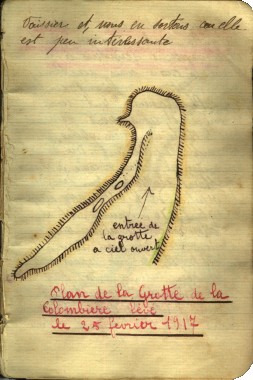 et nous en sortons car elle
est peu intéressante
entrée de
la grotte
a ciel ouvert
Plan de la Grotte de la
Colombière levé
le 25 février 1917